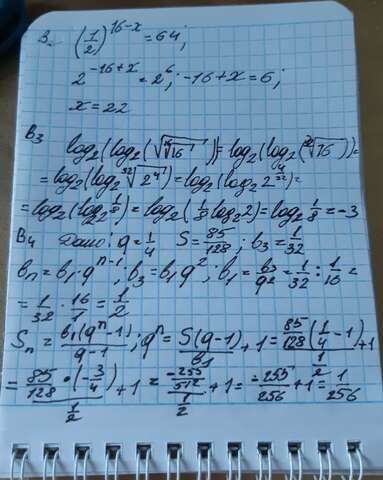 B₂ (1/2)^(16-x) = 64;
2^(-16+x) = 2^6; -16+x = 6;
x = 22
B3
log₂(log₂(√√16)) = log₂(log₂(³²√16)) =
= log₂(log₂ ³²√(2^4)) = log₂(log₂ 2^(4/32)) =
= log₂(log₂^(1/8)) = log₂(1/8 log₂ 2) = log₂ 1/8 = -3
B4 Дано: q = 1/4 S = 85/128; b₃ = 1/32
bn = b₁·q^(n-1); b₃ = b₁q²; b₁ = b₃/q² = 1/32 : 1/16 =
= 1/32 · 16/1 = 1/2
Sn = b₁(q^n-1)/(q-1); q^n = S(q-1)/b₁ + 1 = 85/128(1/4 - 1)/(1/2) + 1
= (85/128 · (-3/4))/(1/2) + 1 = (-255/512)/(1/2) + 1 = -255/256 + 1 = 1/256